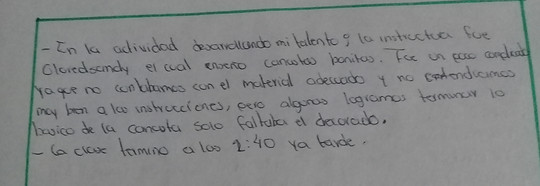 - En la actividad desarrollando mi talento, la instructua fue
el cual enseño canastas bonitas. Fue un poco
ya que no contabamos con el material adecuado y no entendiamos
muy bien a las instrucciones, pero algunas logramos terminar lo
basico de la canasta solo faltaba el decorado.
- La clase termino a las 2:40 ya tarde.